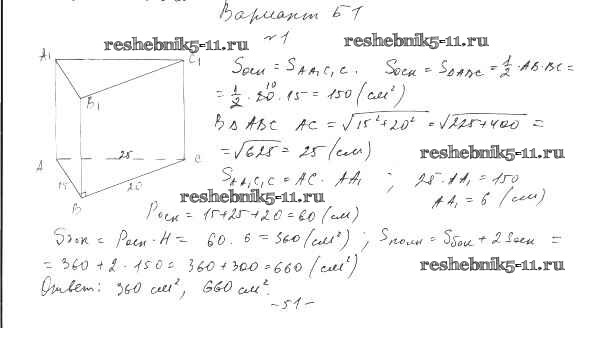 Вариант Б1
№1
reshebnik5-11.ru reshebnik5-11.ru
A₁ C₁ B₁ A C B 25 15 20
Sосн = SAA₁C₁C. Sосн = SΔABC = 1/2 · AB · BC =
= 1/2 · 20 · 15 = 150 (см²)
10
В Δ ABC AC = √15² + 20² = √225 + 400 =
= √625 = 25 (см)
reshebnik5-11.ru
SAA₁C₁C = AC · AA₁ ; 25 · AA₁ = 150
AA₁ = 6 (см)
reshebnik5-11.ru
Pосн = 15 + 25 + 20 = 60 (см)
Sбок = Pосн · H = 60 · 6 = 360 (см²) ; Sполн = Sбок + 2 Sосн =
= 360 + 2 · 150 = 360 + 300 = 660 (см²)
reshebnik5-11.ru
Ответ: 360 см², 660 см².
- 51 -